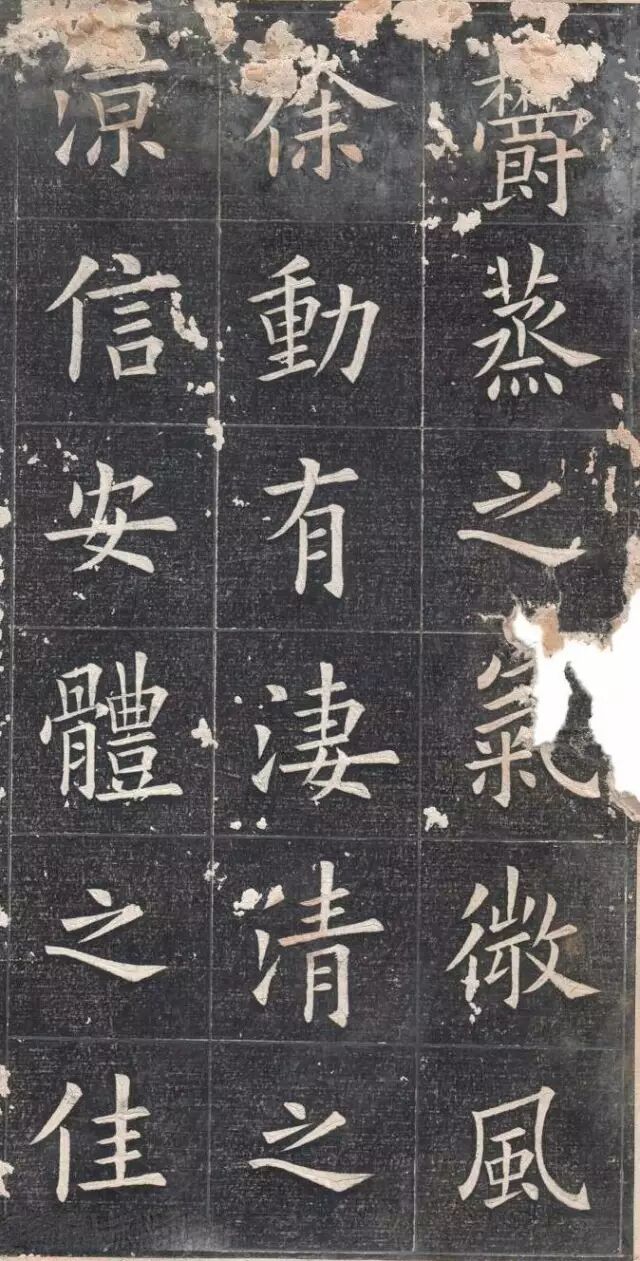 欝蒸之氣微風
徐動有淒清之
涼信安體之佳